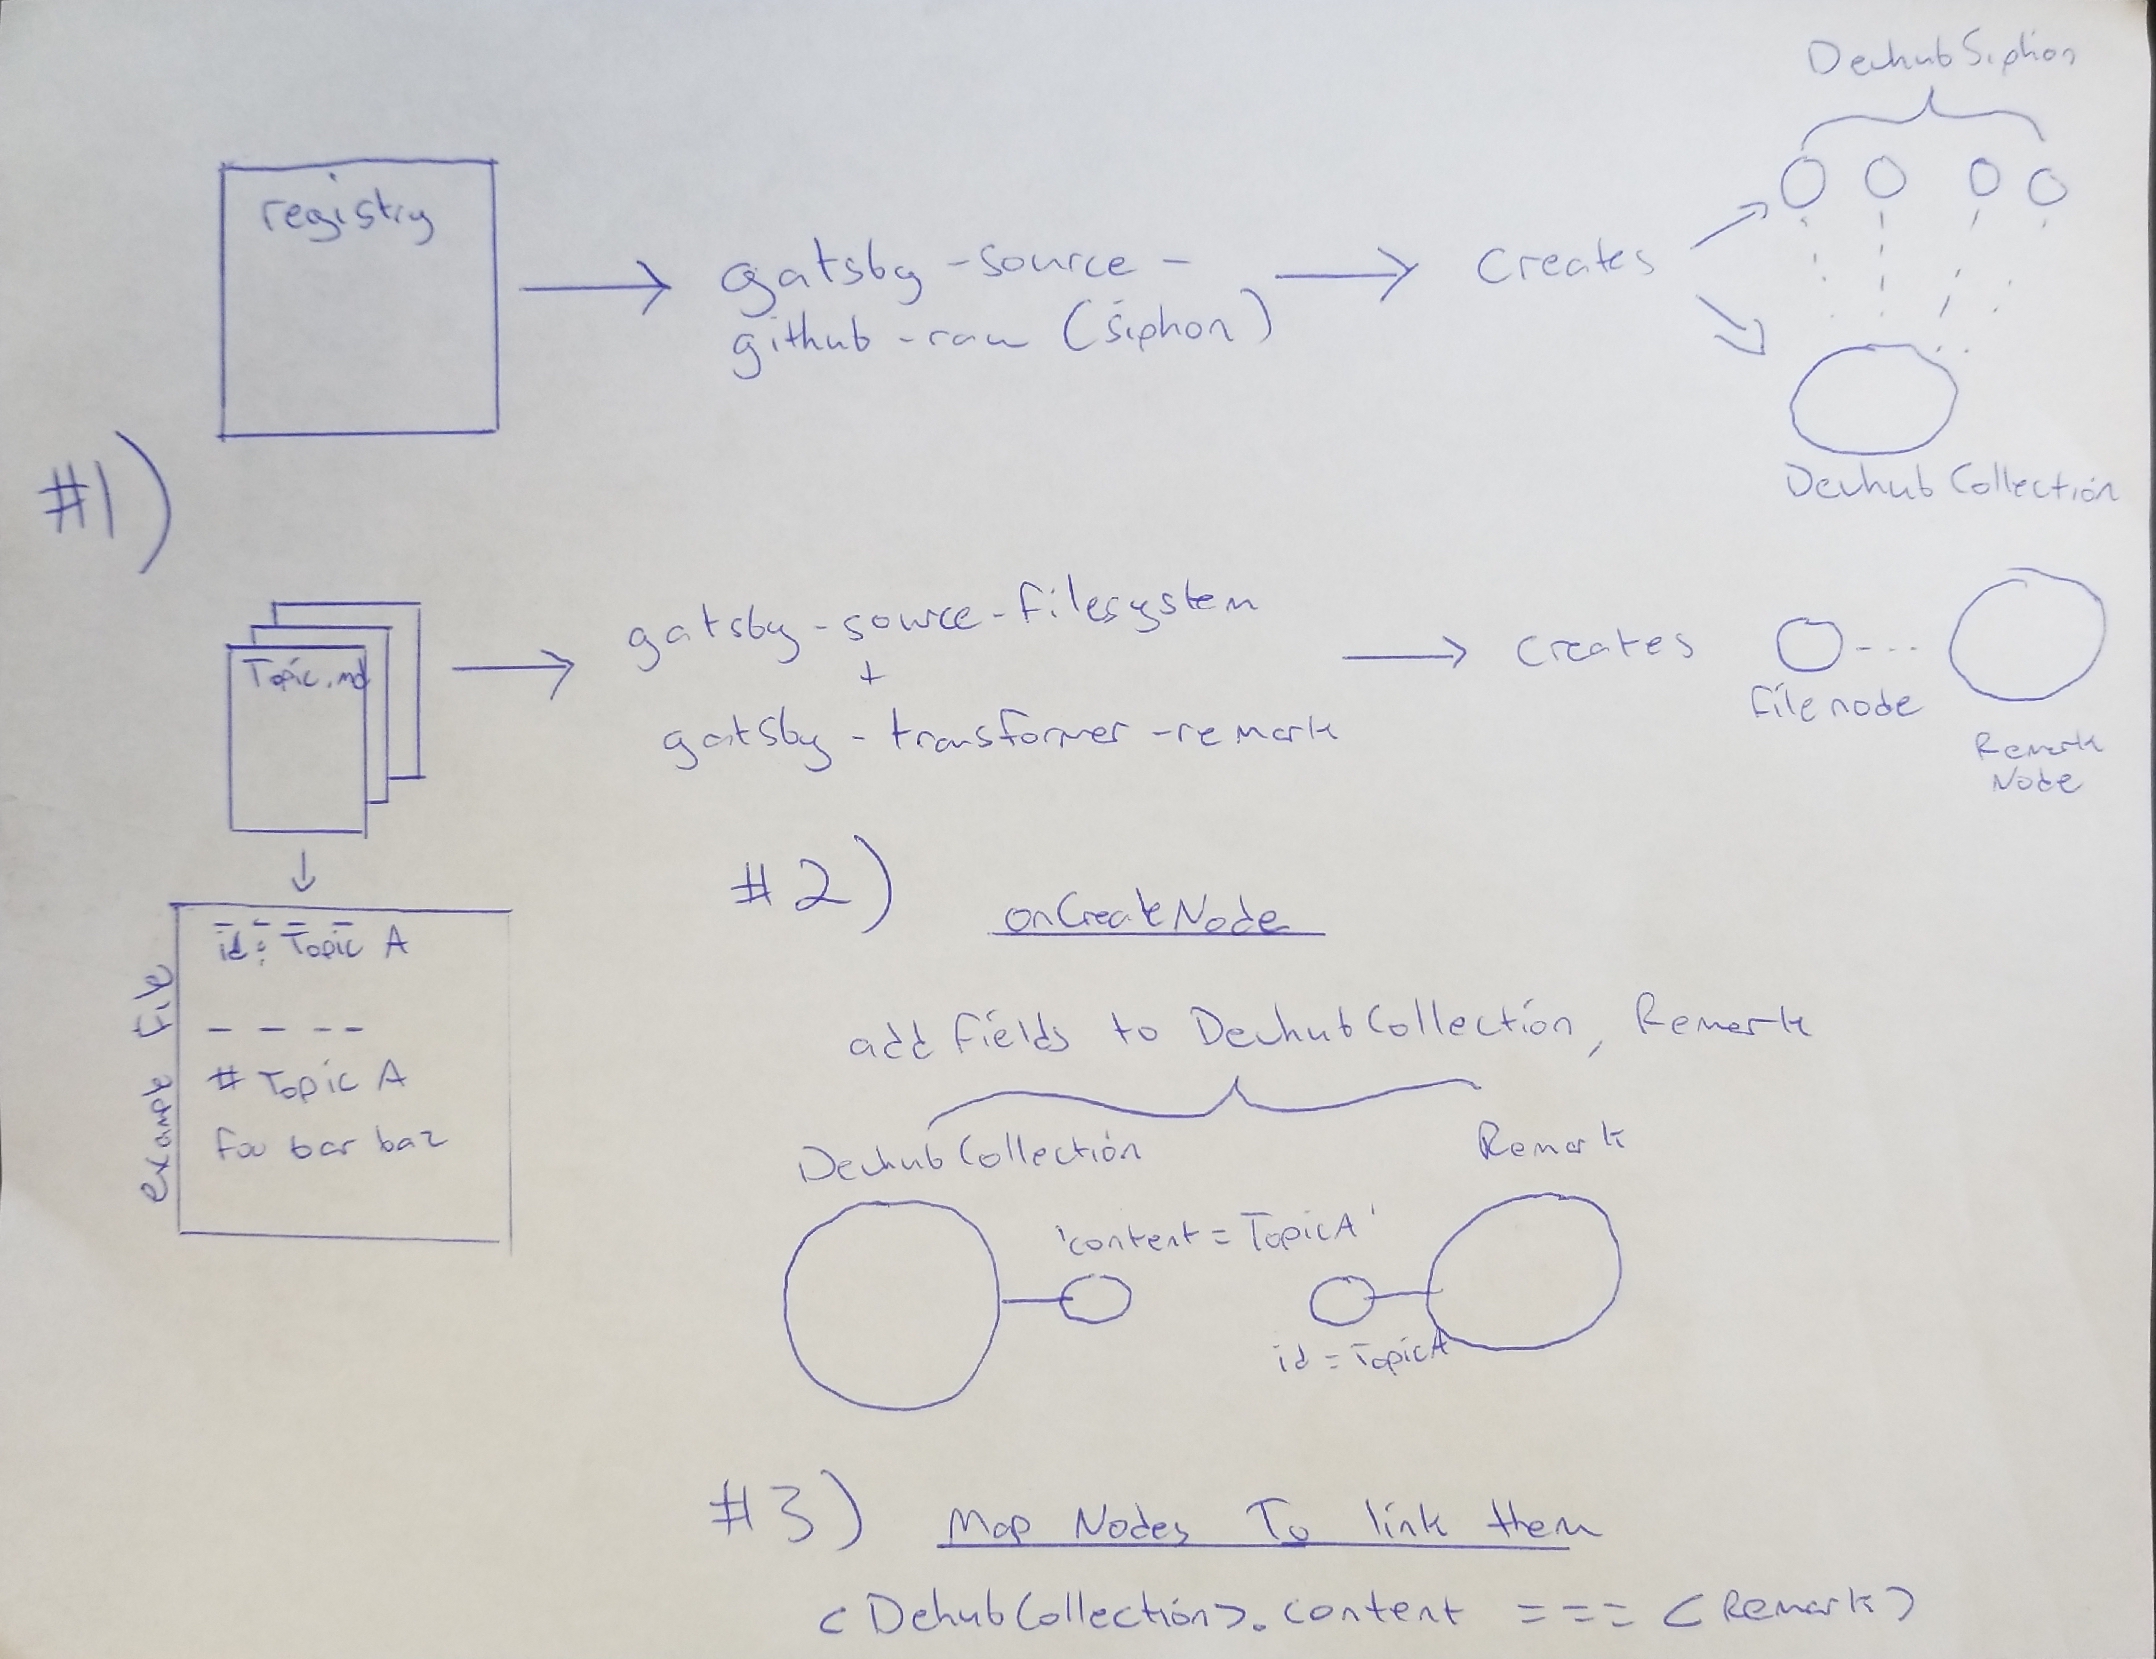 Devhub Siphon
registry
gatsby - source -
github - raw (siphon)
Creates
Devhub Collection
#1)
Topic.md
gatsby - source - filesystem
+
gatsby - transformer - remark
creates
file node
Remark
Node
example file
----
id: Topic A
----
# Topic A
foo bar baz
#2)
onCreateNode
add fields to DevhubCollection, Remark
Devhub Collection
Remark
'content = TopicA'
id = TopicA
#3)
Map Nodes To link them
<DehubCollection>.content === <Remark>